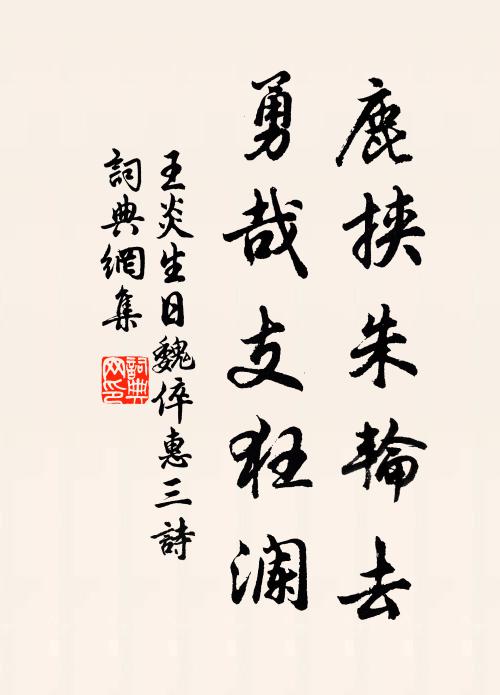 鹿挾朱輪去
勇哉支狂瀾
王炎生日魏倅惠三詩
詞典網集
詞典网印